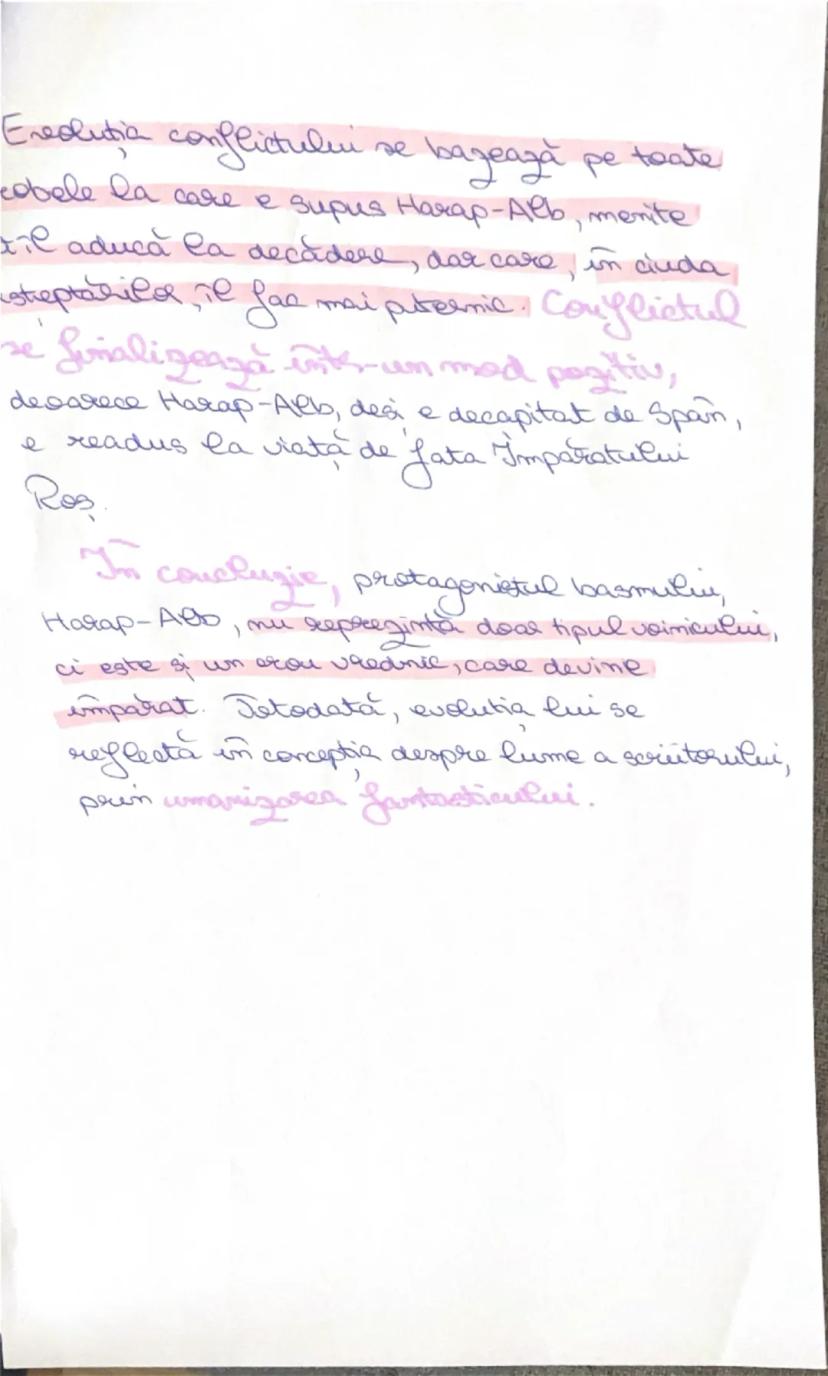 Evoluția conflictului se bazează pe toate
obele la care e supus Harap-Alb, menite
îl aducă la decădere, dar care, în ciuda
șteptărilor, îl fac mai puternic. Conflictul
se finalizează într-un mod pozitiv,
deoarece Harap-Alb, deși e decapitat de Spân,
e readus la viață de fata Împăratului
Roș.
În concluzie, protagonistul basmului,
Harap-Alb, nu reprezintă doar tipul voinicului,
ci este și un erou vrednic, care devine
împărat. Totodată, evoluția lui se
reflectă în concepția despre lume a scriitorului,
prin umanizarea fantasticului.